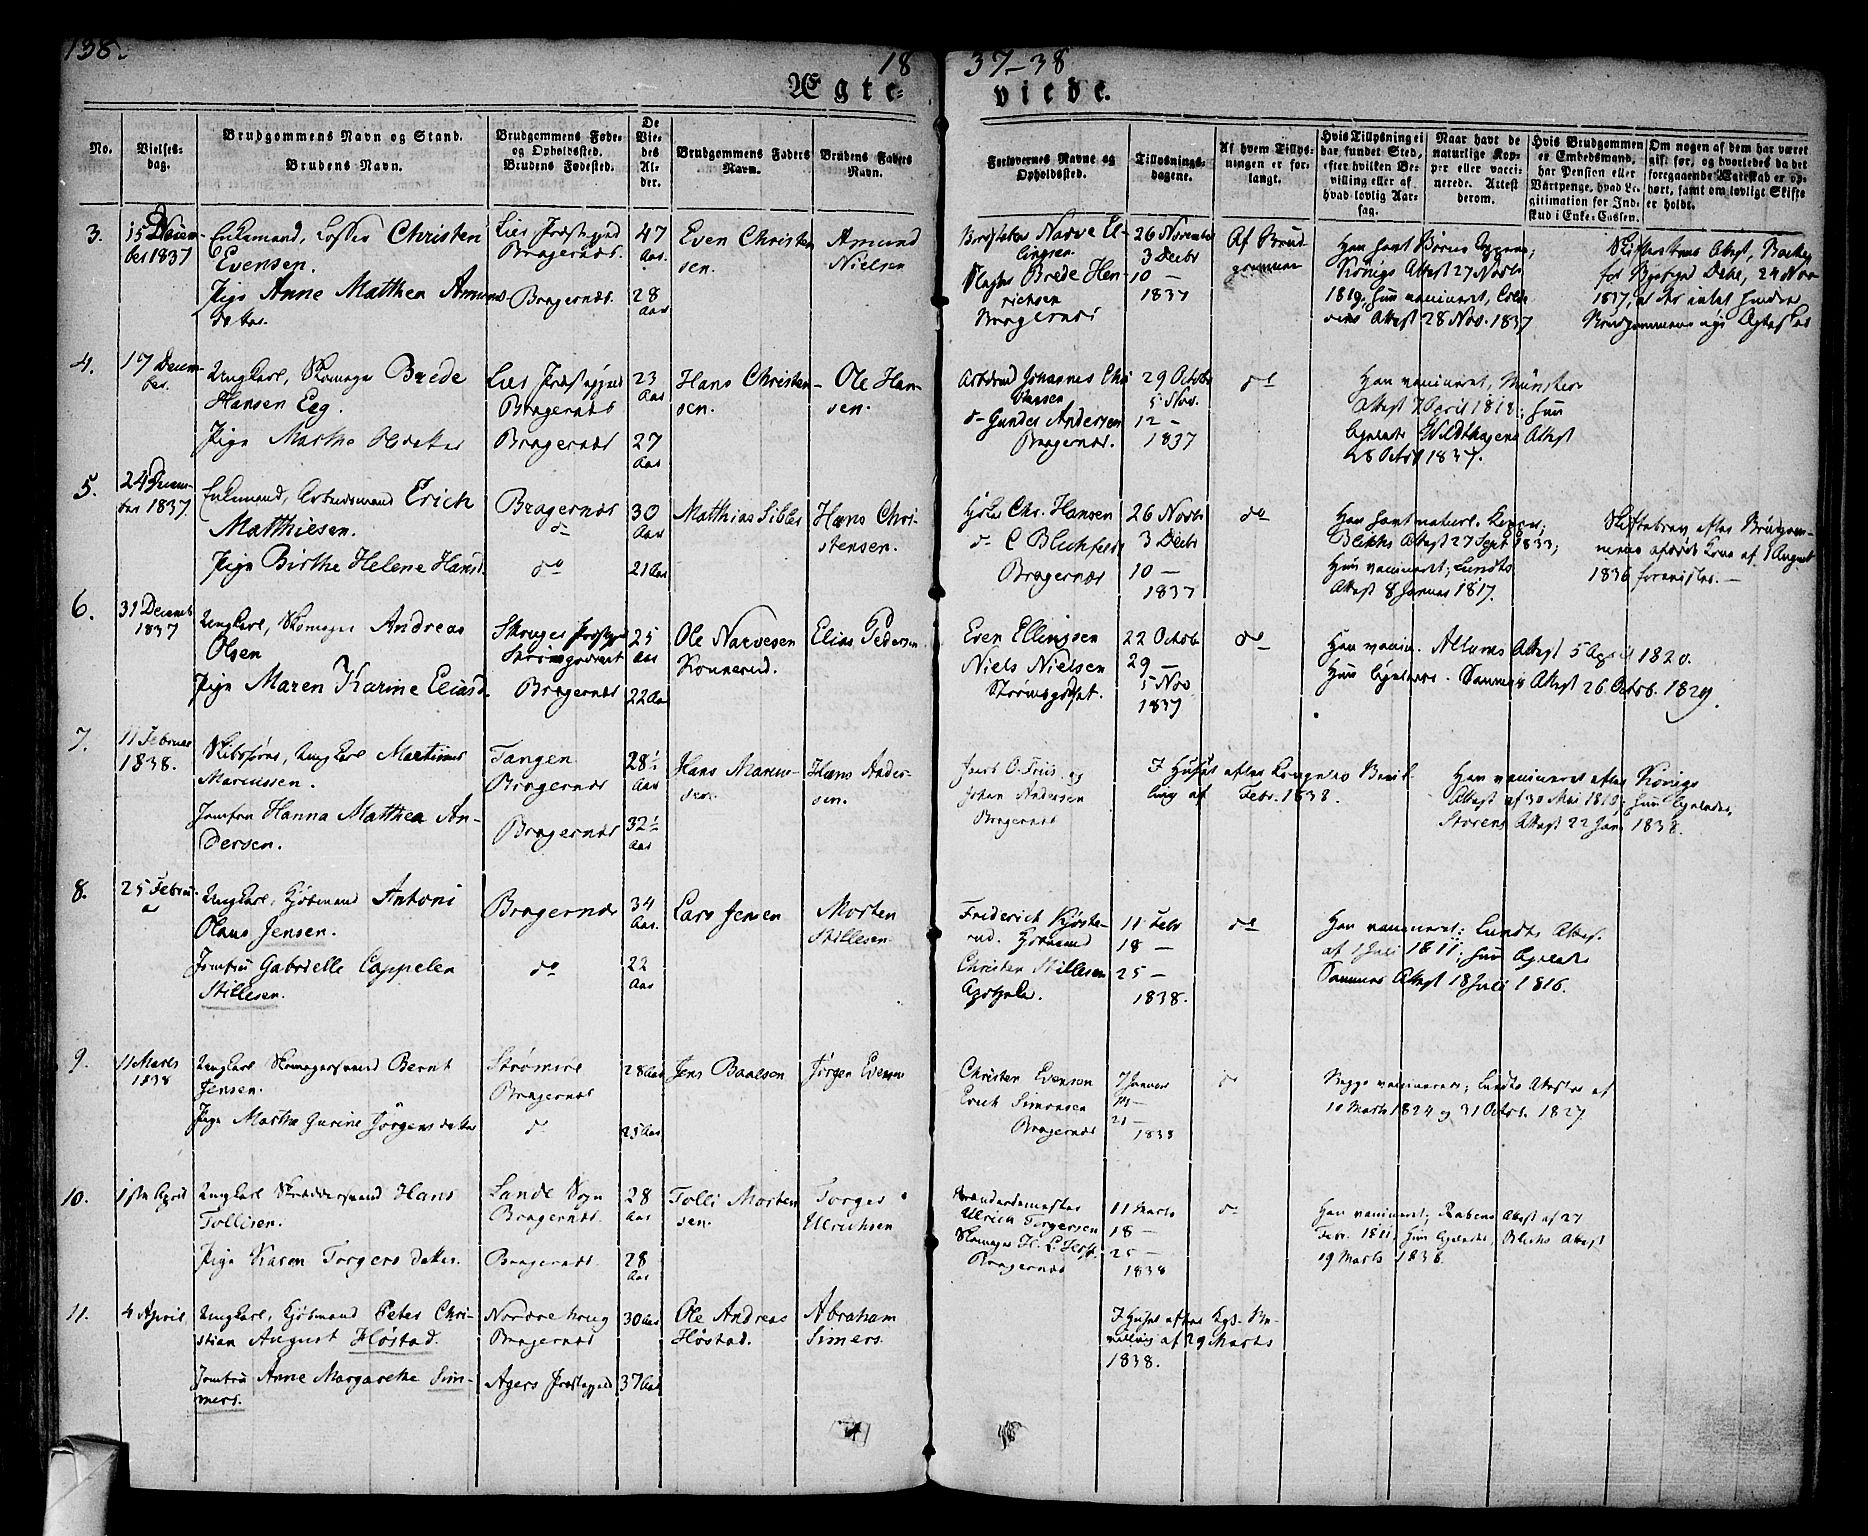 138.
18
37-38
Ægte-
viede.
No.
Vielses-
dag.
Brudgommens Navn og Stand.
Brudens Navn.
Brudgommens Føde-
og Opholdssted.
Brudens Fødested.
De
Vie-
des
Al-
der.
Brudgommens Faders
Navn.
Brudens Faders
Navn.
Forlovernes Navne og
Opholdssted.
Tillysnings-
dagene.
Af hvem Tillys-
ningen er for-
langt.
Hvis Tillysning ei
har fundet Sted,
efter hvilken Be-
villing eller af
hvad lovlig Aar-
sag.
Naar havt de
naturlige Kop-
per eller vacci-
nerede. Attest
derom.
Hvis Brudgommen
er Embedsmand,
har Pension eller
Vartpenge, hvad Le-
gitimation for Ind-
skud i Enke-Cassen.
Om nogen af dem har været
gift før, og hvorledes da det
foregaaende Ægteskab er op-
hørt, samt om lovligt Skifte
er holdt.
3.
15 Decem-
ber 1837
Enkemand, Christen
Evensen.
Pige Anne Matthea Amunds
datter.
Lies Præstegjeld
Bragernæs.
Bragernæs
47
Aar.
28
Aar
Even Christen
sen.
Amund
Nielsen
Narve El-
lingsen
Brede Hen-
richsen
Bragernæs
26 November
3 Decbr
10 —
1837
Af Brud
gommen
Han havt Børne
Königs Attest 27 Novbr
1819; hun vaccineret,
Attest 28 Nov. 1837
Skifterettens Attest,
for Dahe, 24 Nov
1837, at der intet hindrer
Brudgommens nye Ægteskab
4.
17 Decem-
ber.
Ungkarl, Skomager Brede
Hansen Eeg.
Pige Marthe Olsdatter
Lies Præstegjeld
Bragernæs
Bragernæs
23
Aar
27
Aar
Hans Christen-
sen.
Ole Han-
sen.
Johannes Chri
stensen
do Gunder Andersen
Bragernæs.
29 Octobr
5 Nov.
12 —
1837
do
Han vaccineret, Münsters
Attest 7 April 1818; hun
ligeledes Wildthagens Attest
28 Octbr 1837.
5.
24 Decem-
ber 1837.
Enkemand, Arbeidsmand Erich
Matthiesen.
Pige Birthe Helene Hansd.
Bragernæs
do
do
30
Aar
21 Aar
Matthias Sibler
Hans Chri-
stensen.
Chr. Hansen
do C Blichfeldt
Bragernæs
26 Novbr
3 Decbr
10 —
1837
do
Han havt naturl. Kopper;
Blichs Attest 27 Sept 1833;
Hun vaccineret; Lundts
Attest 8 Januar 1817.
Skiftebrev efter Brudgom-
mens afdøde Kone af 1 August
1836 forevistes. —
6.
31 Decemb
1837
Ungkarl, Skomager Andreas
Olsen
Pige Maren Karine Eliasd.
Skouger Præstegjeld
Strømsgodset
Bragernæs
25
Aar
22 Aar
Ole Narvesen
Konnerud.
Elias Pedersen
Even Ellingsen
Niels Nielsen
Strømsgodset.
22 Octob
29 —
5 Nov
1837
do
Han vaccin. Allums Attest 5 April 1820.
Hun ligeledes. Sammes Attest 26 Octob. 1829.
7.
11 Februar
1838.
Ungkarl Martinus
Marcussen.
Jomfru Hanna Matthea An-
dersen.
Tangen
Bragernæs
Bragernæs
28½
Aar
32½
Aar
Hans Marcus-
sen.
Hans Ander-
sen.
Jacob O. Friis og
Johan Andersen
Bragernæs
I Huset efter Kongelig Bevil-
ling af Febr. 1838.
Han vaccineret efter Königs
Attest af 30 Mai 1810; hun ligeledes,
Storens Attest 22 Jan 1838.
8.
25 Febru-
ar
Ungkarl, Kjøbmand Antoni
Olaus Jensen.
Jomfru Gabrielle Cappelen
Stillesen.
Bragernæs
do
34
Aar.
22
Aar
Lars Jensen
Morten
Stillesen
Frederich Kjøste-
rud. Kjøbmand
Christen Stillesen
Apotheker.
11 Febr
18 —
25 —
1838.
do
Han vaccineret; Lundts Attest.
af 1 Juli 1811; hun ligeledes
Sammes Attest 18 Juli 1816.
9.
11 Marts
1838
Ungkarl Skomagersvend Bernt
Jensen.
Pige Marthe Gurine Jörgensdatter
Strømsøe
Bragernæs
do
28 Aar
25 Aar
Jens Baalsen
Jörgen Evensen
Christen Evensen
Erich Simonsen
Bragernæs
7 Januar
14 —
21 —
1838
do
Begge vaccinerede; Lundts Attester af
10 Marts 1824 og 31 Octbr. 1827
10.
1ste April
Ungkarl Skræddersvend Hans
Tollisen.
Pige Karen Torgersdatter.
Sande Sogn
Bragernæs.
Bragernæs
28
Aar
28
Aar
Tolli Morten
sen.
Torger
Ullrichsen
Ulrich Torgersen
Skomager H. L.
Bragernæs
11 Marts
18 —
25 —
1838
do
Han vaccineret; Rabens Attest af 27
Febr. 1811, hun ligeledes, Blichs Attest
19 Marts 1838.
11.
4 April
Ungkarl, Kjøbmand Peter Chri-
stian August Høstad.
Jomfru Anne Margarethe Sim-
mers.
Nordrehoug
Bragernæs
Agers Præstegjeld
30 Aar
37 Aar
Ole Andreas
Høstad.
Abraham
Simers.
I Huset efter Kgl. Be-
villing af 29 Marts
1838.